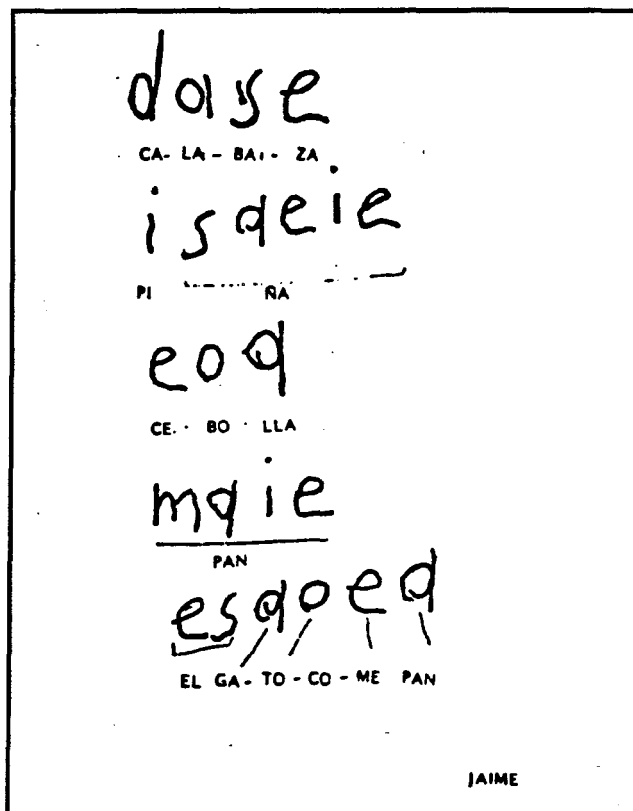 dase
CA- LA - BAI - ZA
isaeie
PI ÑA
eoq
CE. · BO · LLA
maie
PAN
esaoea
EL GA - TO - CO - ME PAN
JAIME